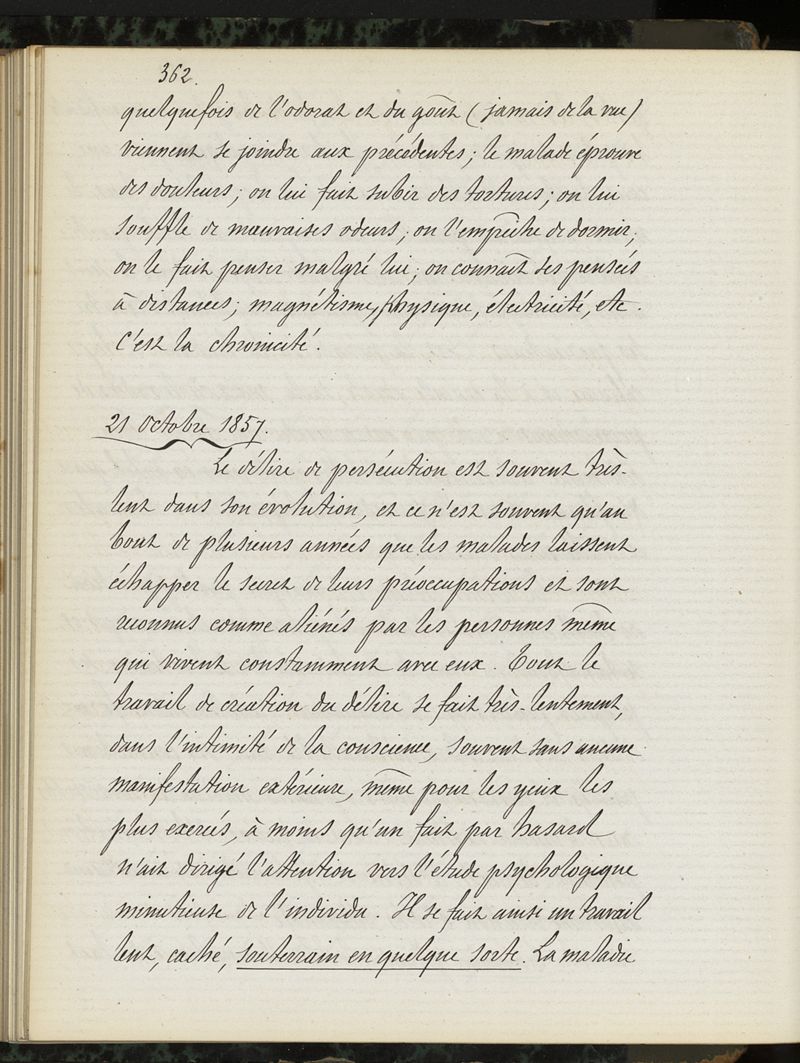 362.
quelquefois de l'odorat et du goût (jamais de la vue)
viennent se joindre aux précédentes; le malade éprouve
des douleurs; on lui fait subir des tortures; on lui
souffle de mauvaises odeurs; on l'empêche de dormir;
on le fait penser malgré lui; on connaît ses pensées
à distances; magnétisme, physique, électricité, etc.
C'est la chronicité.
21 Octobre 1857.
Le délire de persécution est souvent très-
lent dans son évolution, et ce n'est souvent qu'au
bout de plusieurs années que les malades laissent
échapper le secret de leurs préoccupations et sont
reconnus comme aliénés par les personnes même
qui vivent constamment avec eux. Tout le
travail de création du délire se fait très-lentement,
dans l'intimité de la conscience, souvent sans aucune
manifestation extérieure, même pour les yeux les
plus exercés, à moins qu'un fait par hasard
n'ait dirigé l'attention vers l'étude psychologique
minutieuse de l'individu. Il se fait ainsi un travail
lent, caché, souterrain en quelque sorte. La maladie